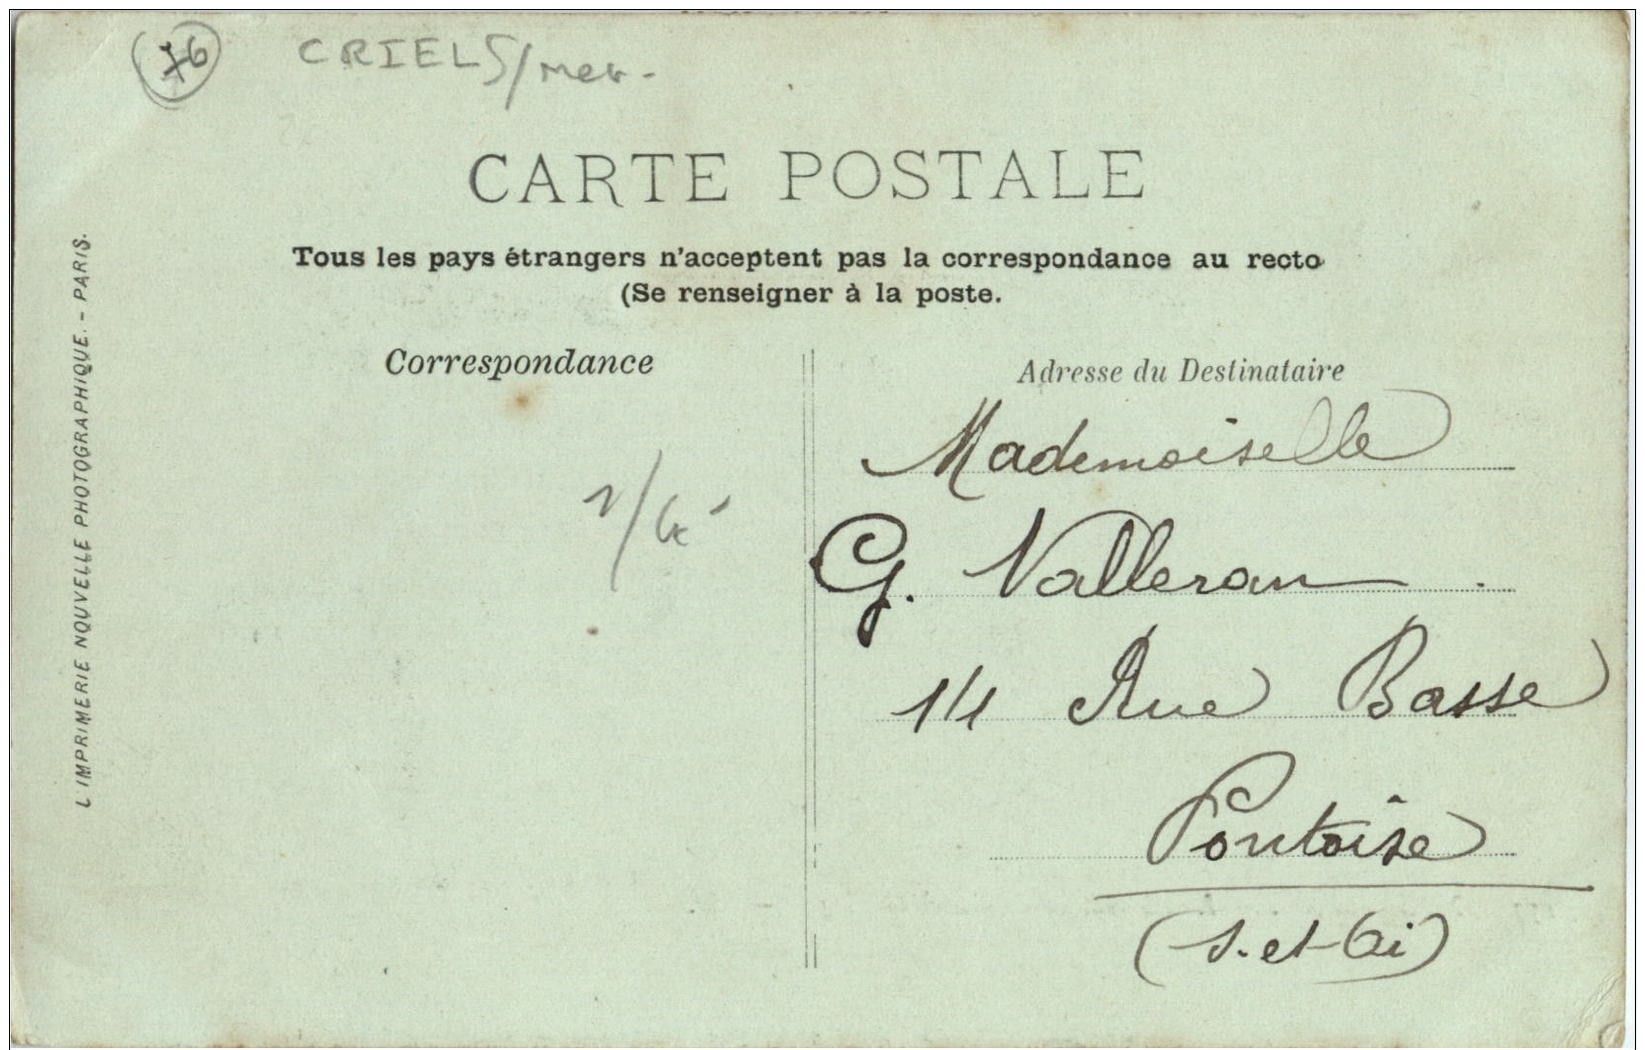 76 CRIEL S/mer.
CARTE POSTALE
Tous les pays étrangers n'acceptent pas la correspondance au recto
(Se renseigner à la poste.
Correspondance
Adresse du Destinataire
Mademoiselle
G. Valleran
14 Rue Basse
Pontoise
(S.-et-Oi)
L'IMPRIMERIE NOUVELLE PHOTOGRAPHIQUE. - PARIS.